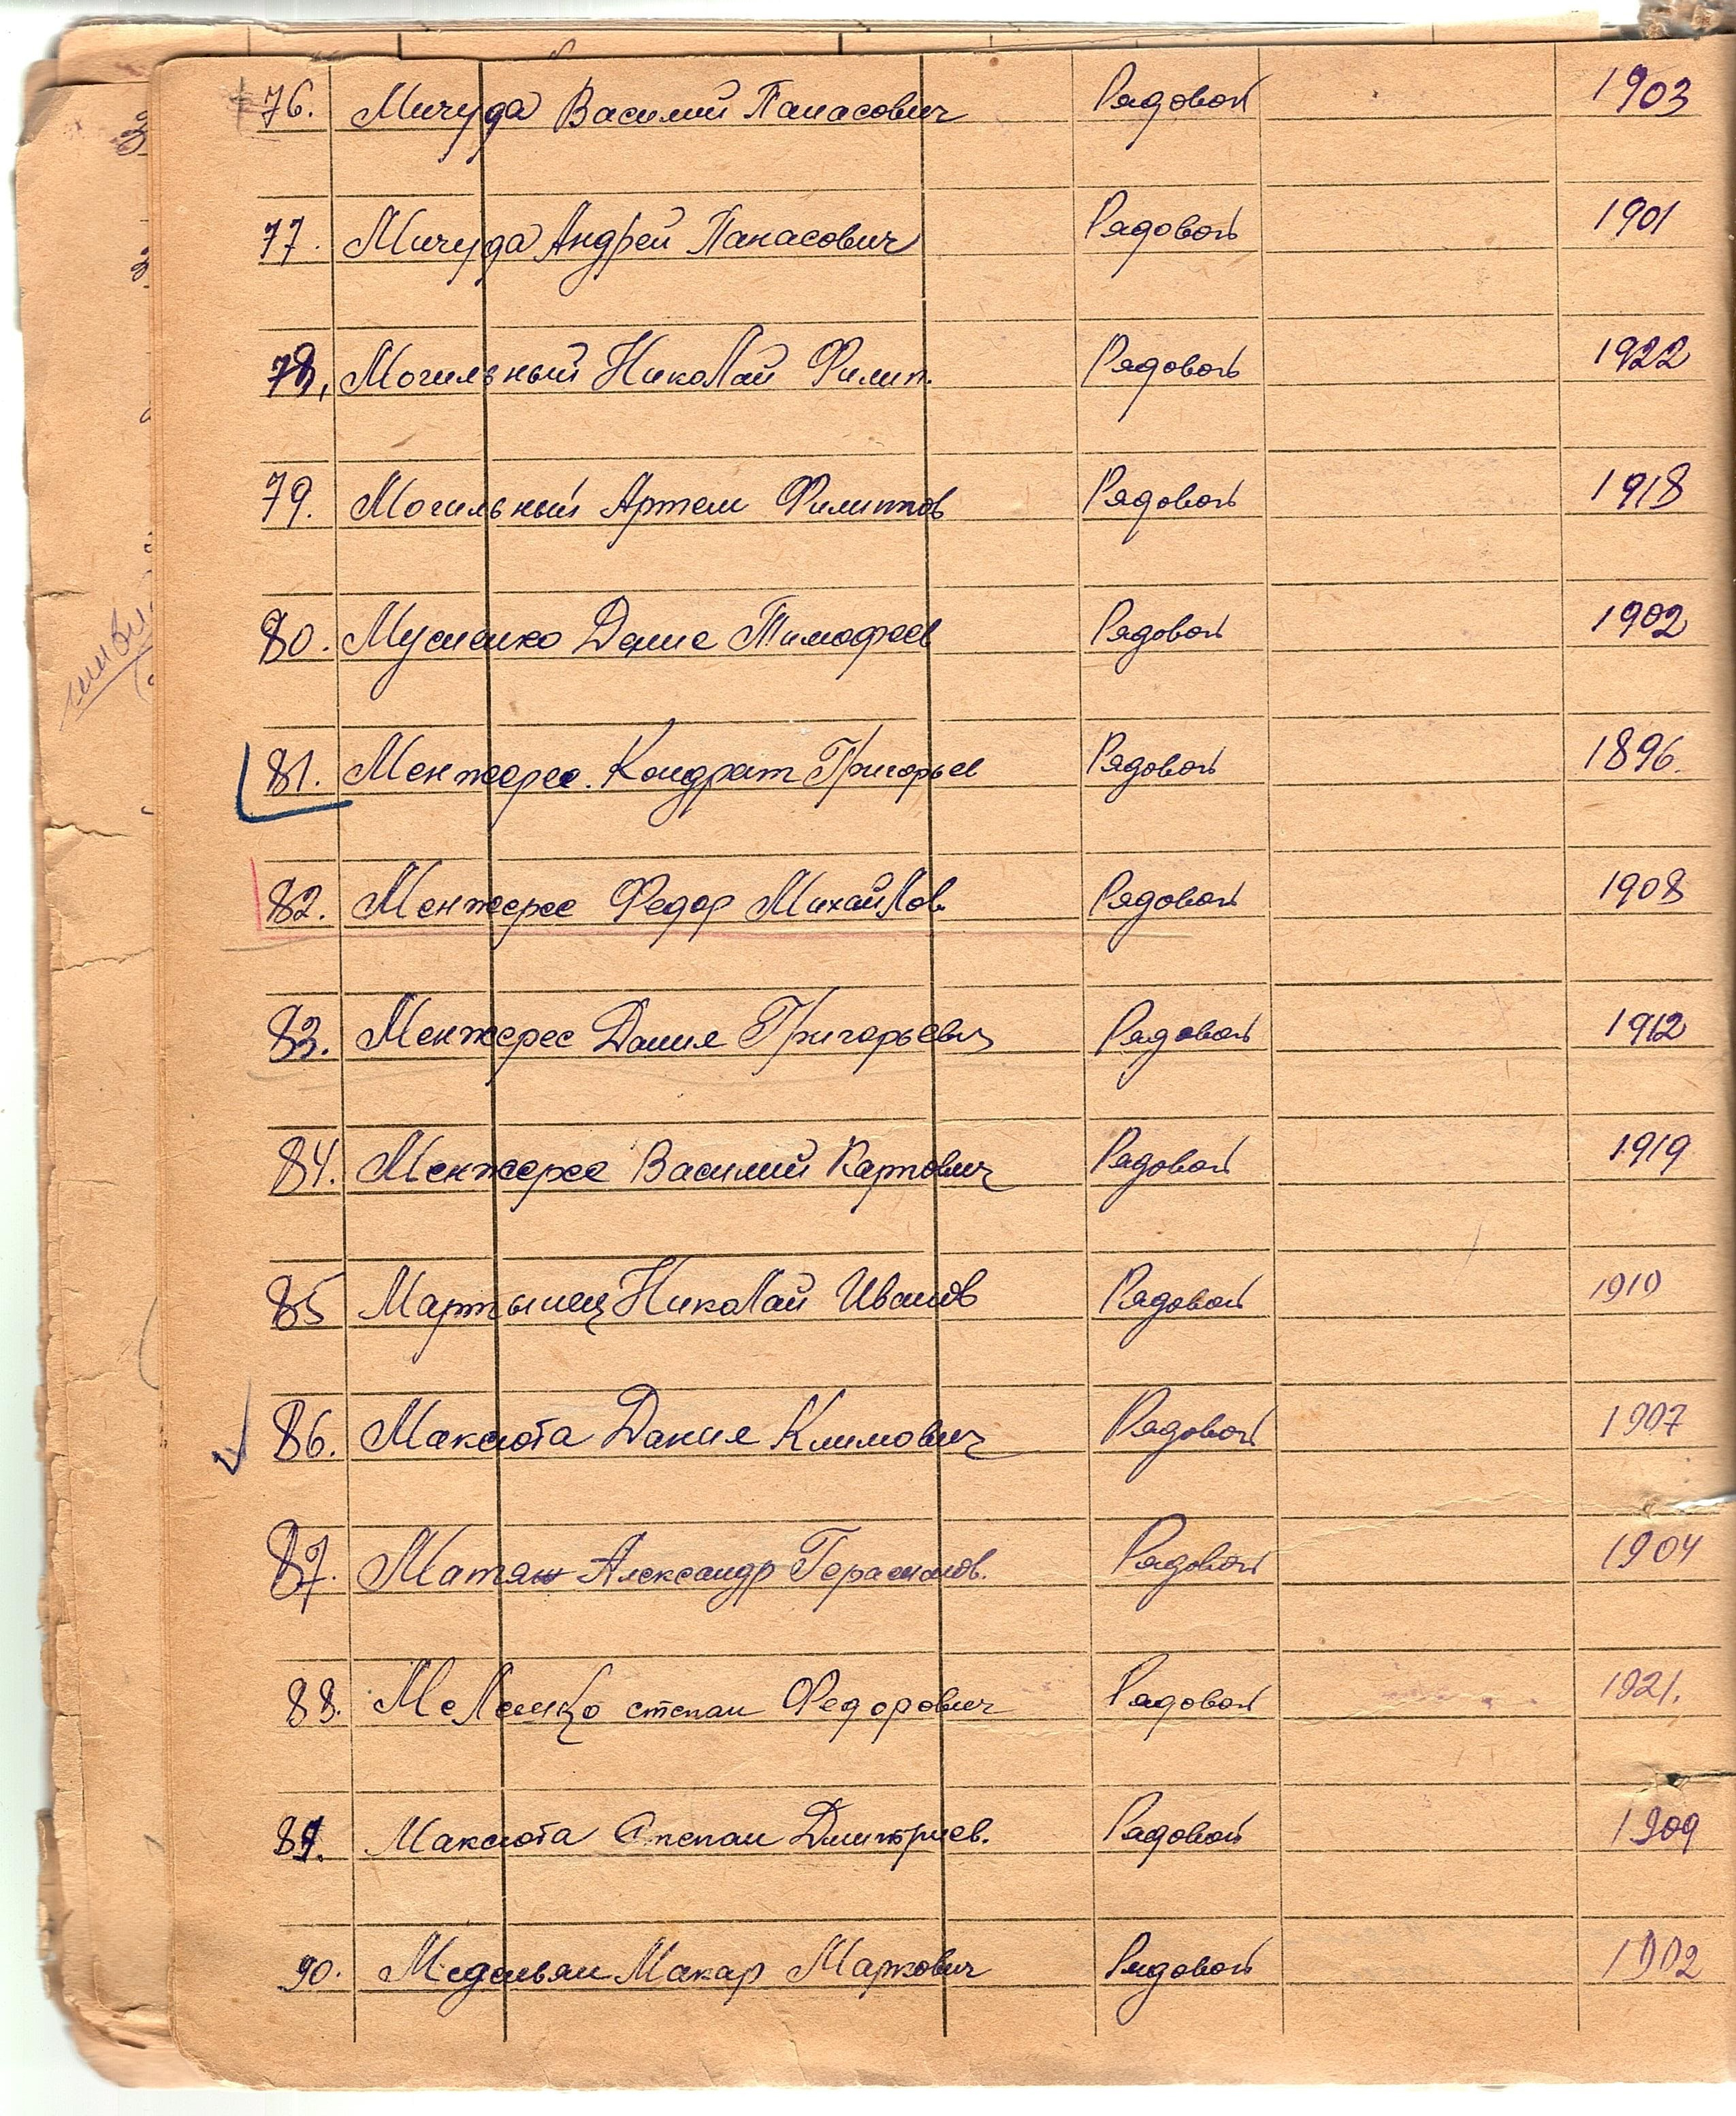 76. Мичуда Василий Панасович Рядовой 1903
77. Мичуда Андрей Панасович Рядовой 1901
78. Могильный Николай Филип. Рядовой 1922
79. Могильный Артем Филиппов Рядовой 1918
80. Мусиенко Денис Тимофеев Рядовой 1902
81. Менжерес. Кондрат Григорьев Рядовой 1896.
82. Менжерес Федор Михайлов Рядовой 1908
83. Менжерес Данил Григорьевич Рядовой 1912
84. Менжерес Василий Карпович Рядовой 1919
85 Мартынец Николай Иванов Рядовой 1910
86. Максюта Данил Климович Рядовой 1907
87. Матяш Александр Герасимов. Рядовой 1904
88. Меленко степан Федорович Рядовой 1921.
89. Максюта Степан Дмитриев. Рядовой 1909
90. Макар Маркович Рядовой 1902